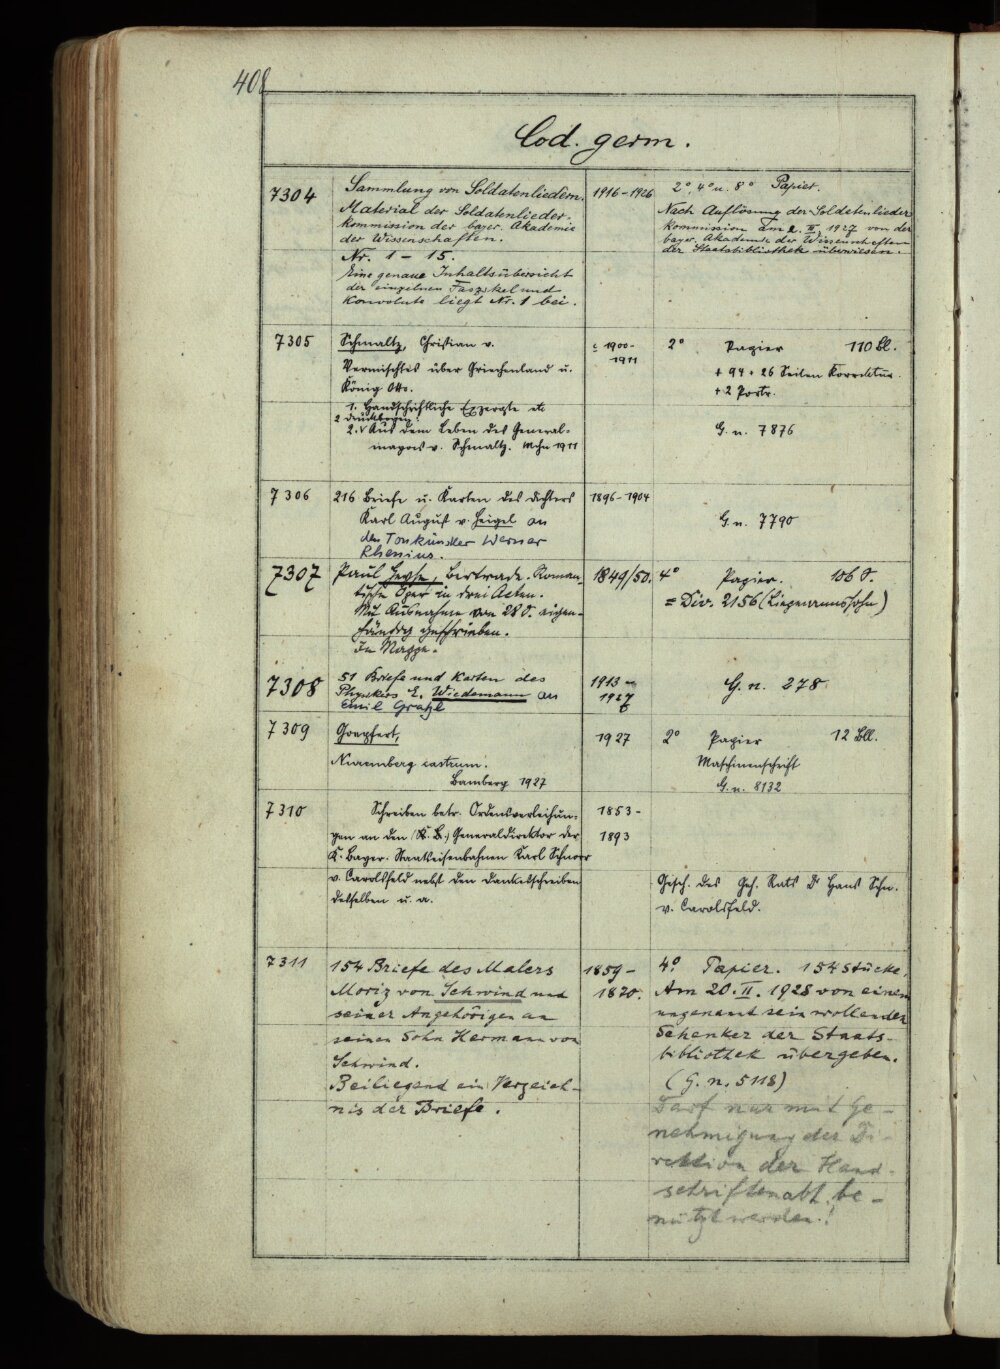 408
Cod. germ.
7304
Sammlung von Soldatenliedern.
Material der Soldatenlieder-
kommission der bayer. Akademie
der Wissenschaften.
Nr. 1 – 15.
Eine genaue Inhaltsübersicht
der einzelnen Faszikel und
Konvolute liegt Nr. 1 bei.
1916–1926
2°, 4° u. 8° Papier.
Nach Auflösung der Soldatenlieder
kommission am 2. II. 1927 von der
bayer. Akademie der Wissenschaften
der Staatsbibliothek überwiesen.
7305
Schmaltz, Christian v.
Vermischtes über Griechenland u.
König Otto.
1. Handschriftliche Exzerpte etc
2 Druckbogen:
2. Aus dem Leben des General-
majors v. Schmaltz. Mchn 1911
c 1900-
1911
2° Papier 110 Bl.
+ 94 + 26 Seiten Korrektur.
+ 2 Portr.
G. n. 7876
7306
216 Briefe u. Karten des Dichters
Karl August v. Heigel an
den Tonkünstler Werner
Rhenius.
1896–1904
G. n. 7790
7307
Paul Heyse, Bertrade. Roman-
tische Oper in drei Acten.
Mit Ausnahme von 28 S. eigen-
händig geschrieben.
In Mappe.
1849/50.
4° Papier. 106 S.
= Div. 2156 (Liepmannssohn)
7308
51 Briefe und Karten des
Physikers E. Wiedemann an
Emil Gratzl
1913 –
1927
G. n. 278
7309
Goepfert,
Nuremberg castrum.
Bamberg 1927
1927
2° Papier 12 Bll.
Maschinenschrift
G. n. 8132
7310
Schreiben betr. Ordensverleihun-
gen an den (K. B.) Generaldirektor der
K. Bayer. Staatseisenbahnen Karl Schnorr
v. Carolsfeld nebst den Dankschreiben
desselben u. a.
1853 –
1893
Gesch. des Geh. Rats Dr Hans Schn.
v. Carolsfeld.
7311
154 Briefe des Malers
Moriz von Schwind und
seiner Angehörigen an
seinen Sohn Hermann von
Schwind.
Beiliegend ein Verzeich-
nis der Briefe.
1859–
1870.
4° Papier. 154 Stücke.
Am 20. II. 1928 von einem
ungenannt sein wollenden
Schenker der Staats-
bibliothek übergeben.
(G. n. 5118)
Darf nur mit Ge-
nehmigung der Di-
rektion der Hand-
schriftenabt. be-
nützt werden!